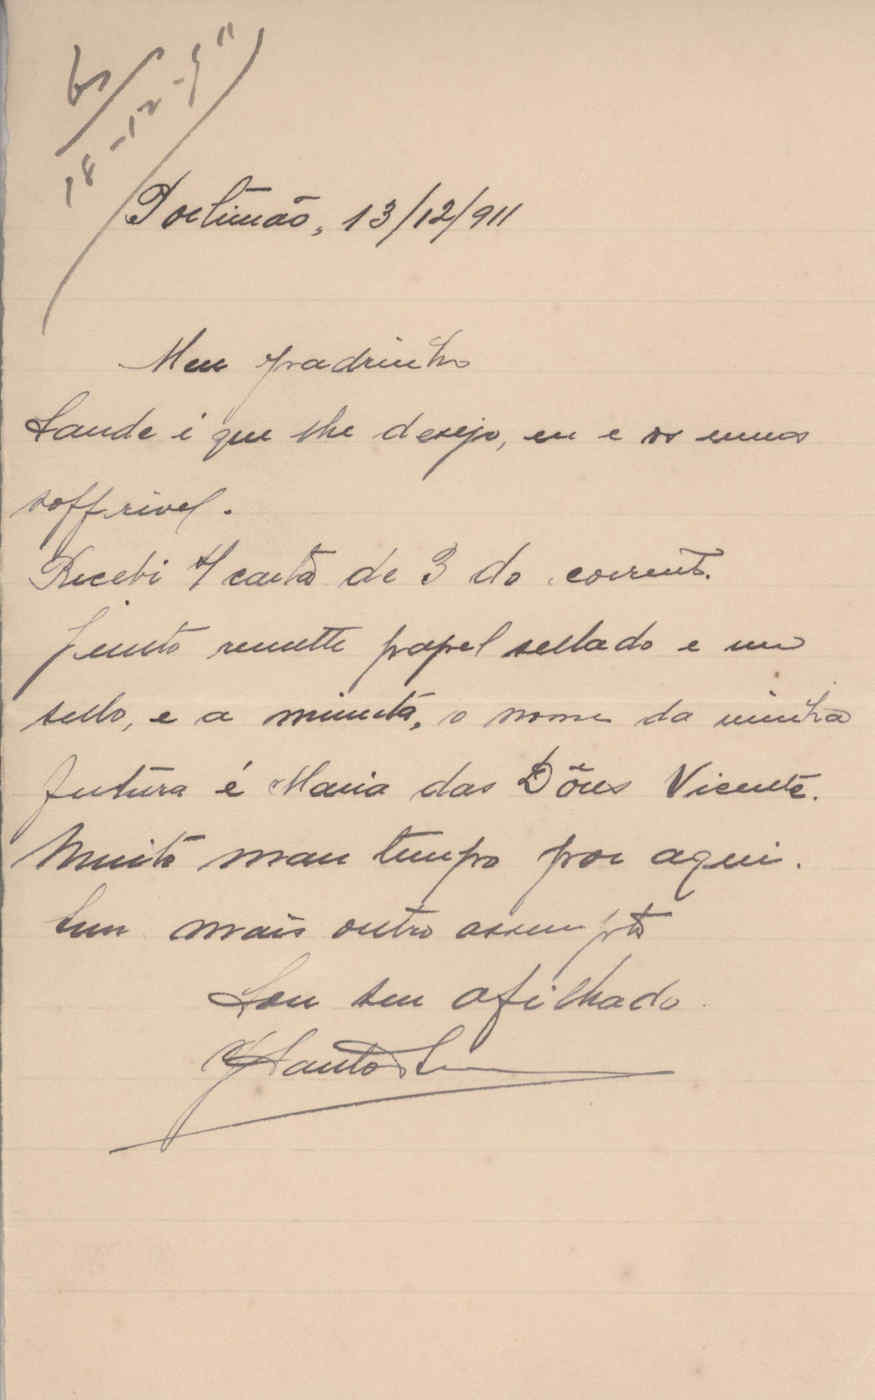 18-12-911
Portimão, 13/12/911
Meu padrinho
Saude é que lhe desejo, eu e os meus
soffrivel.
Recebi carta de 3 do corrente.
Junto remette papel sellado e um
sello, e a minuta, o nome da minha
futura é Maria das Dôres Vicente.
Muito mau tempo por aqui.
Sem mais outro assumpto
Sou seu afilhado